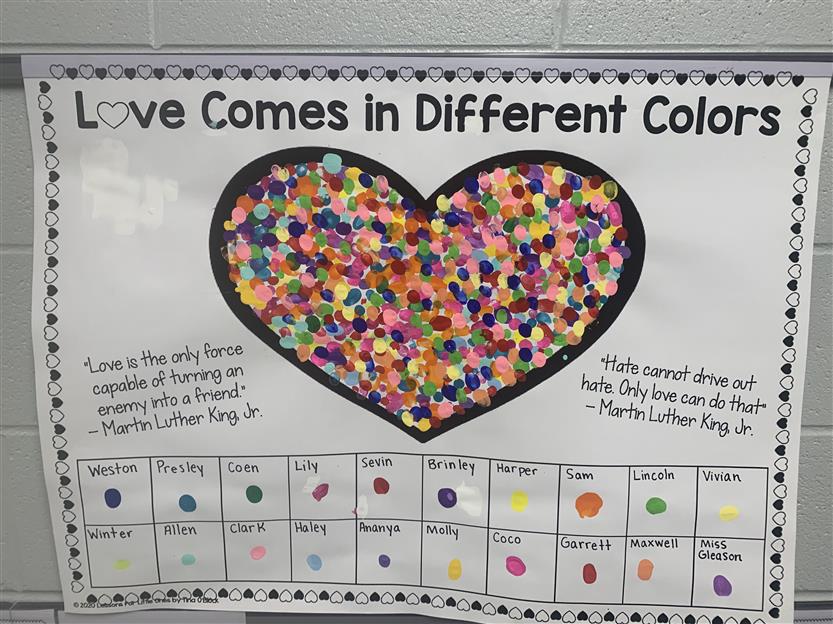 Love Comes in Different Colors
"Love is the only force
capable of turning an
enemy into a friend."
– Martin Luther King, Jr.
"Hate cannot drive out
hate. Only love can do that"
– Martin Luther King, Jr.
Weston Presley Coen Lily Sevin Brinley Harper Sam Lincoln Vivian
Winter Allen Clark Haley Ananya Molly Coco Garrett Maxwell Miss
Gleason
© 2020 Lessons For Little Ones by Tina O'Block